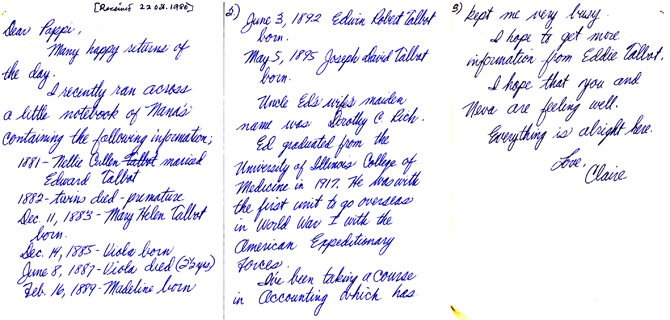 [Received 22 Oct. 1980]
Dear Pappi,
Many happy returns of
the day.
I recently ran across
a little notebook of Nana's
containing the following information;
1881 - Nellie Cullen Talbot married
Edward Talbot
1882 - twins died - premature
Dec. 11, 1883 - Mary Helen Talbot
born.
Dec. 14, 1885 - Viola born
June 8, 1887 - Viola died (2½ yrs)
Feb. 16, 1889 - Madeline born
2)
June 3, 1892 Edwin Robert Talbot
born.
May 5, 1895 Joseph David Talbot
born.
Uncle Ed's wife's maiden
name was Dorothy C. Rich.
Ed graduated from the
University of Illinois College of
Medicine in 1917. He was with
the first unit to go overseas
in World War I with the
American Expeditionary
Forces.
I've been taking a course
in Accounting which has
3)
kept me very busy.
I hope to get more
information from Eddie Talbot.
I hope that you and
Neva are feeling well.
Everything is alright here.
Love,
Claire